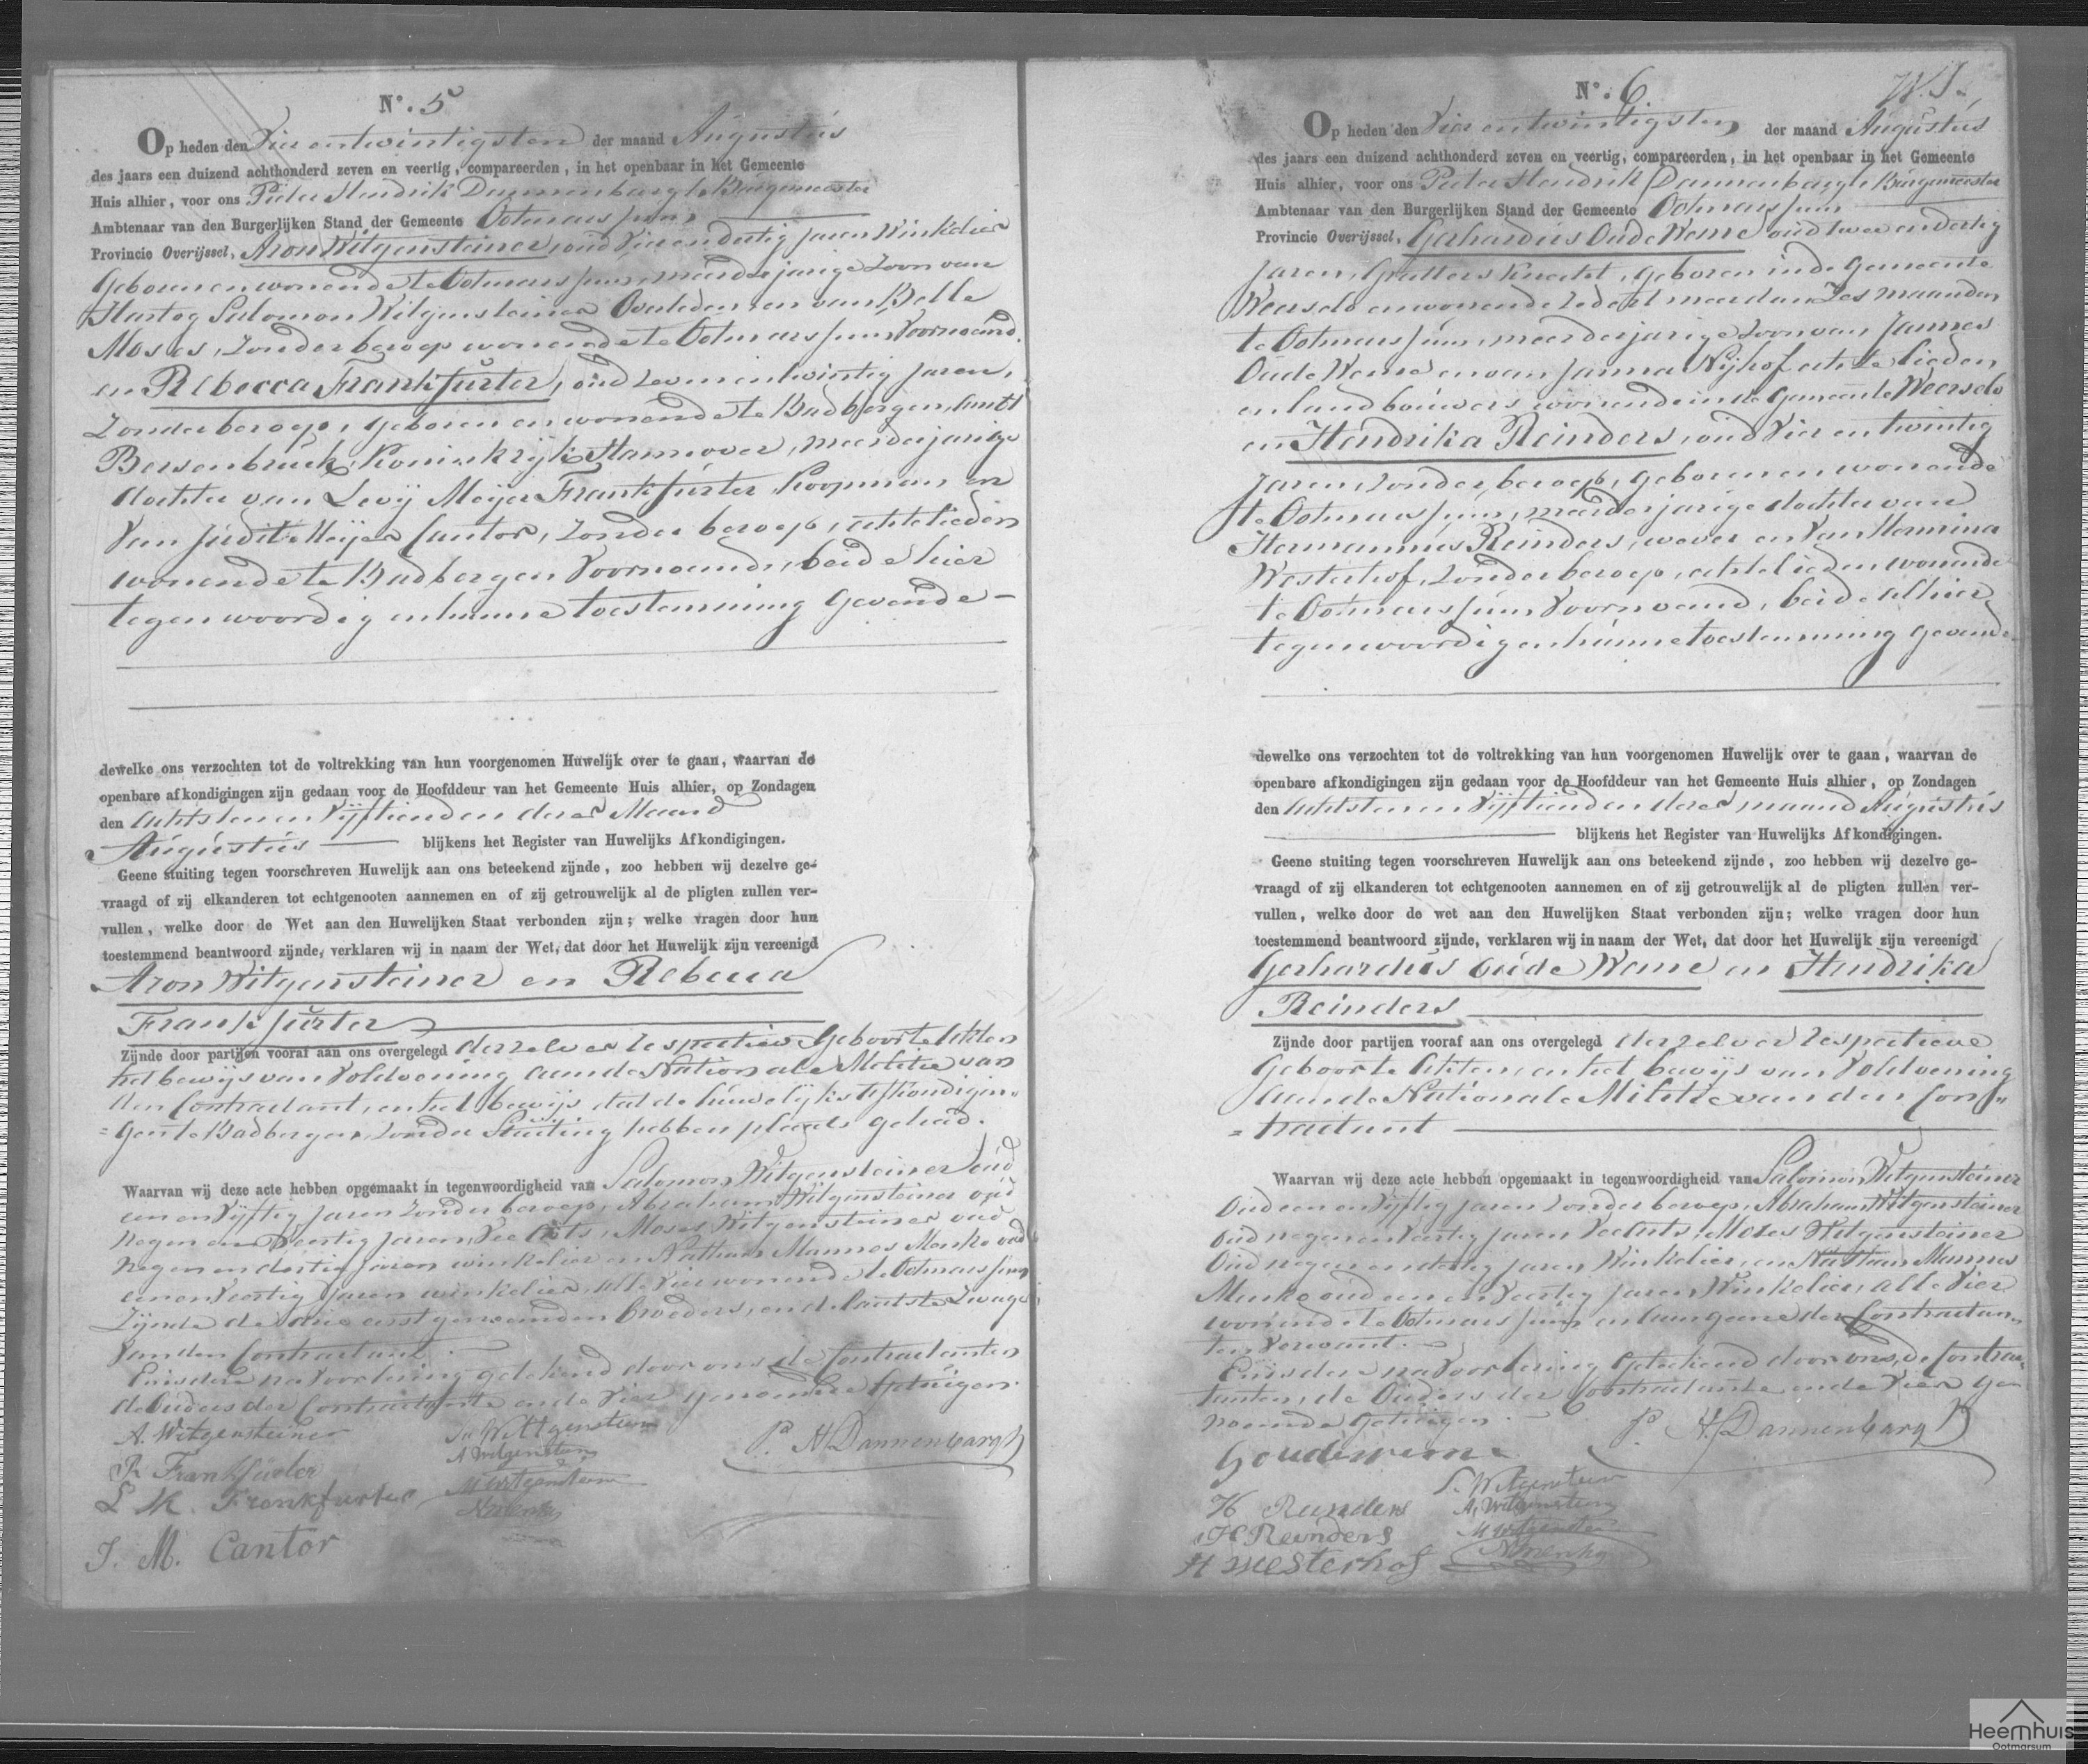 N°. 5
Op heden den Vier en twintigsten der maand Augustus
des jaars een duizend achthonderd zeven en veertig, compareerden, in het openbaar in het Gemeente
Huis alhier, voor ons Pieter Hendrik Dannenbargh Burgemeester
Ambtenaar van den Burgerlijken Stand der Gemeente Ootmarssum
Provincie Overijssel, Aron Witgensteiner, oud Vier en dertig jaren Winkelier
Geboren en wonende te Ootmarssum, meerderjarige Zoon van
Hartog Salomon Witgensteiner Overleden en van Belle
Moses, Zonder beroep wonende te Ootmarssum Voornoemd.
en Rebecca Frankfurter, oud Zeven en twintig jaren,
Zonder beroep, geboren en wonende te Badbergen, Amt
Bersenbruck, Koninkrijk Hannover, meerderjarige
dochter van Levij Meijer Frankfurter, Koopman en
Van Judit Meijer Cantor, Zonder beroep, echtelieden
wonende te Badbergen Voornoemd, beide hier
tegenwoordig en hunne toestemming gevende —
dewelke ons verzochten tot de voltrekking van hun voorgenomen Huwelijk over te gaan, waarvan de
openbare afkondigingen zijn gedaan voor de Hoofddeur van het Gemeente Huis alhier, op Zondagen
den Achtsten en Vijftienden dezer Maand
Augustus — blijkens het Register van Huwelijks Afkondigingen.
Geene stuiting tegen voorschreven Huwelijk aan ons beteekend zijnde, zoo hebben wij dezelve ge-
vraagd of zij elkanderen tot echtgenooten aannemen en of zij getrouwelijk al de pligten zullen ver-
vullen, welke door de Wet aan den Huwelijken Staat verbonden zijn; welke vragen door hun
toestemmend beantwoord zijnde, verklaren wij in naam der Wet, dat door het Huwelijk zijn vereenigd
Aron Witgensteiner en Rebecca
Frankfurter
Zijnde door partijen vooraf aan ons overgelegd derzelver respectieve Geboorte Akten
het bewijs van Voldoening aan de Nationale Militie van
den Contractant, en het bewijs dat de huwelijks Afkondigin-
= gen te Badbergen, Zonder Stuiting hebben plaats gehad.
Waarvan wij deze acte hebben opgemaakt in tegenwoordigheid van Salomon Witgensteiner oud
een en Vijftig jaren Zonder beroep, Abraham Witgensteiner oud
Negen en Veertig jaren, Vee Arts, Moses Witgensteiner oud
Negen en dertig jaren winkelier en Nathan Mannes Menko oud
een en Veertig jaren winkelier, alle Vier wonende te Ootmarssum
Zijnde de drie eerstgenoemden broeders, en de laatste Zwager
Van den Contractant. —
Zijnde deze na Voorlezing geteekend door ons, de Contractanten
de Ouders der Contractante en de Vier genoemde Getuigen.
A. Witgensteiner
S. Witgenstein
P. H. Dannenbargh
R Frankfurter
A Witgenstein
L M. Frankfurter
M Witgenstein
N Menko
J. M. Cantor
N°. 6
Op heden den Vier en twintigsten der maand Augustus
des jaars een duizend achthonderd zeven en veertig, compareerden, in het openbaar in het Gemeente
Huis alhier, voor ons Pieter Hendrik Dannenbargh Burgemeester
Ambtenaar van den Burgerlijken Stand der Gemeente Ootmarssum
Provincie Overijssel, Gerhardus Oude Weme oud twee en dertig
Jaren, Grutters Knecht, geboren in de Gemeente
Weerselo en wonende Zedert meer dan Zes maanden
te Ootmarssum, meerderjarige Zoon van Jannes
Oude Weme en van Janna Nijhof echtelieden
en landbouwers wonende in de Gemeente Weerselo
en Hendrika Reinders, oud Vier en twintig
Jaren, Zonder beroep, geboren en wonende
te Ootmarssum, meerderjarige dochter van
Hermannus Reinders, wever en Van Hermina
Westerhof, Zonder beroep, echtelieden wonende
te Ootmarssum Voornoemd, beide alhier
tegenwoordig en hunne toestemming gevende
dewelke ons verzochten tot de voltrekking van hun voorgenomen Huwelijk over te gaan, waarvan de
openbare afkondigingen zijn gedaan voor de Hoofddeur van het Gemeente Huis alhier, op Zondagen
den Achtsten en Vijftienden dezer maand Augustus
blijkens het Register van Huwelijks Afkondigingen.
Geene stuiting tegen voorschreven Huwelijk aan ons beteekend zijnde, zoo hebben wij dezelve ge-
vraagd of zij elkanderen tot echtgenooten aannemen en of zij getrouwelijk al de pligten zullen ver-
vullen, welke door de wet aan den Huwelijken Staat verbonden zijn; welke vragen door hun
toestemmend beantwoord zijnde, verklaren wij in naam der Wet, dat door het Huwelijk zijn vereenigd
Gerhardus Oude Weme en Hendrika
Reinders
Zijnde door partijen vooraf aan ons overgelegd derzelver respectieve
Geboorte Akten, en het bewijs van Voldoening
aan de Nationale Militie van den Con-
= tractant
Waarvan wij deze acte hebben opgemaakt in tegenwoordigheid van Salomon Witgensteiner
Oud een en Vijftig jaren Zonder beroep, Abraham Witgensteiner
oud negen en Veertig jaren Vee Arts, Moses Witgensteiner
Oud negen en dertig jaren Winkelier, en Nathan Mannes
Menko oud een en Veertig jaren Winkelier, alle Vier
wonende te Ootmarssum en aan geene der Contractan-
ten Verwant. —
Zijnde deze na Voorlezing Geteekend door ons, de Contrac-
tanten, de Ouders der Contractante en de Vier ge-
noemde getuigen. —
G oude weme
P. H. Dannenbargh
S. Witgenstein
H Reinders
A. Witgenstein
H Reinders
M Witgenstein
H Westerhof
N Menko
Heemhuis
Ootmarsum